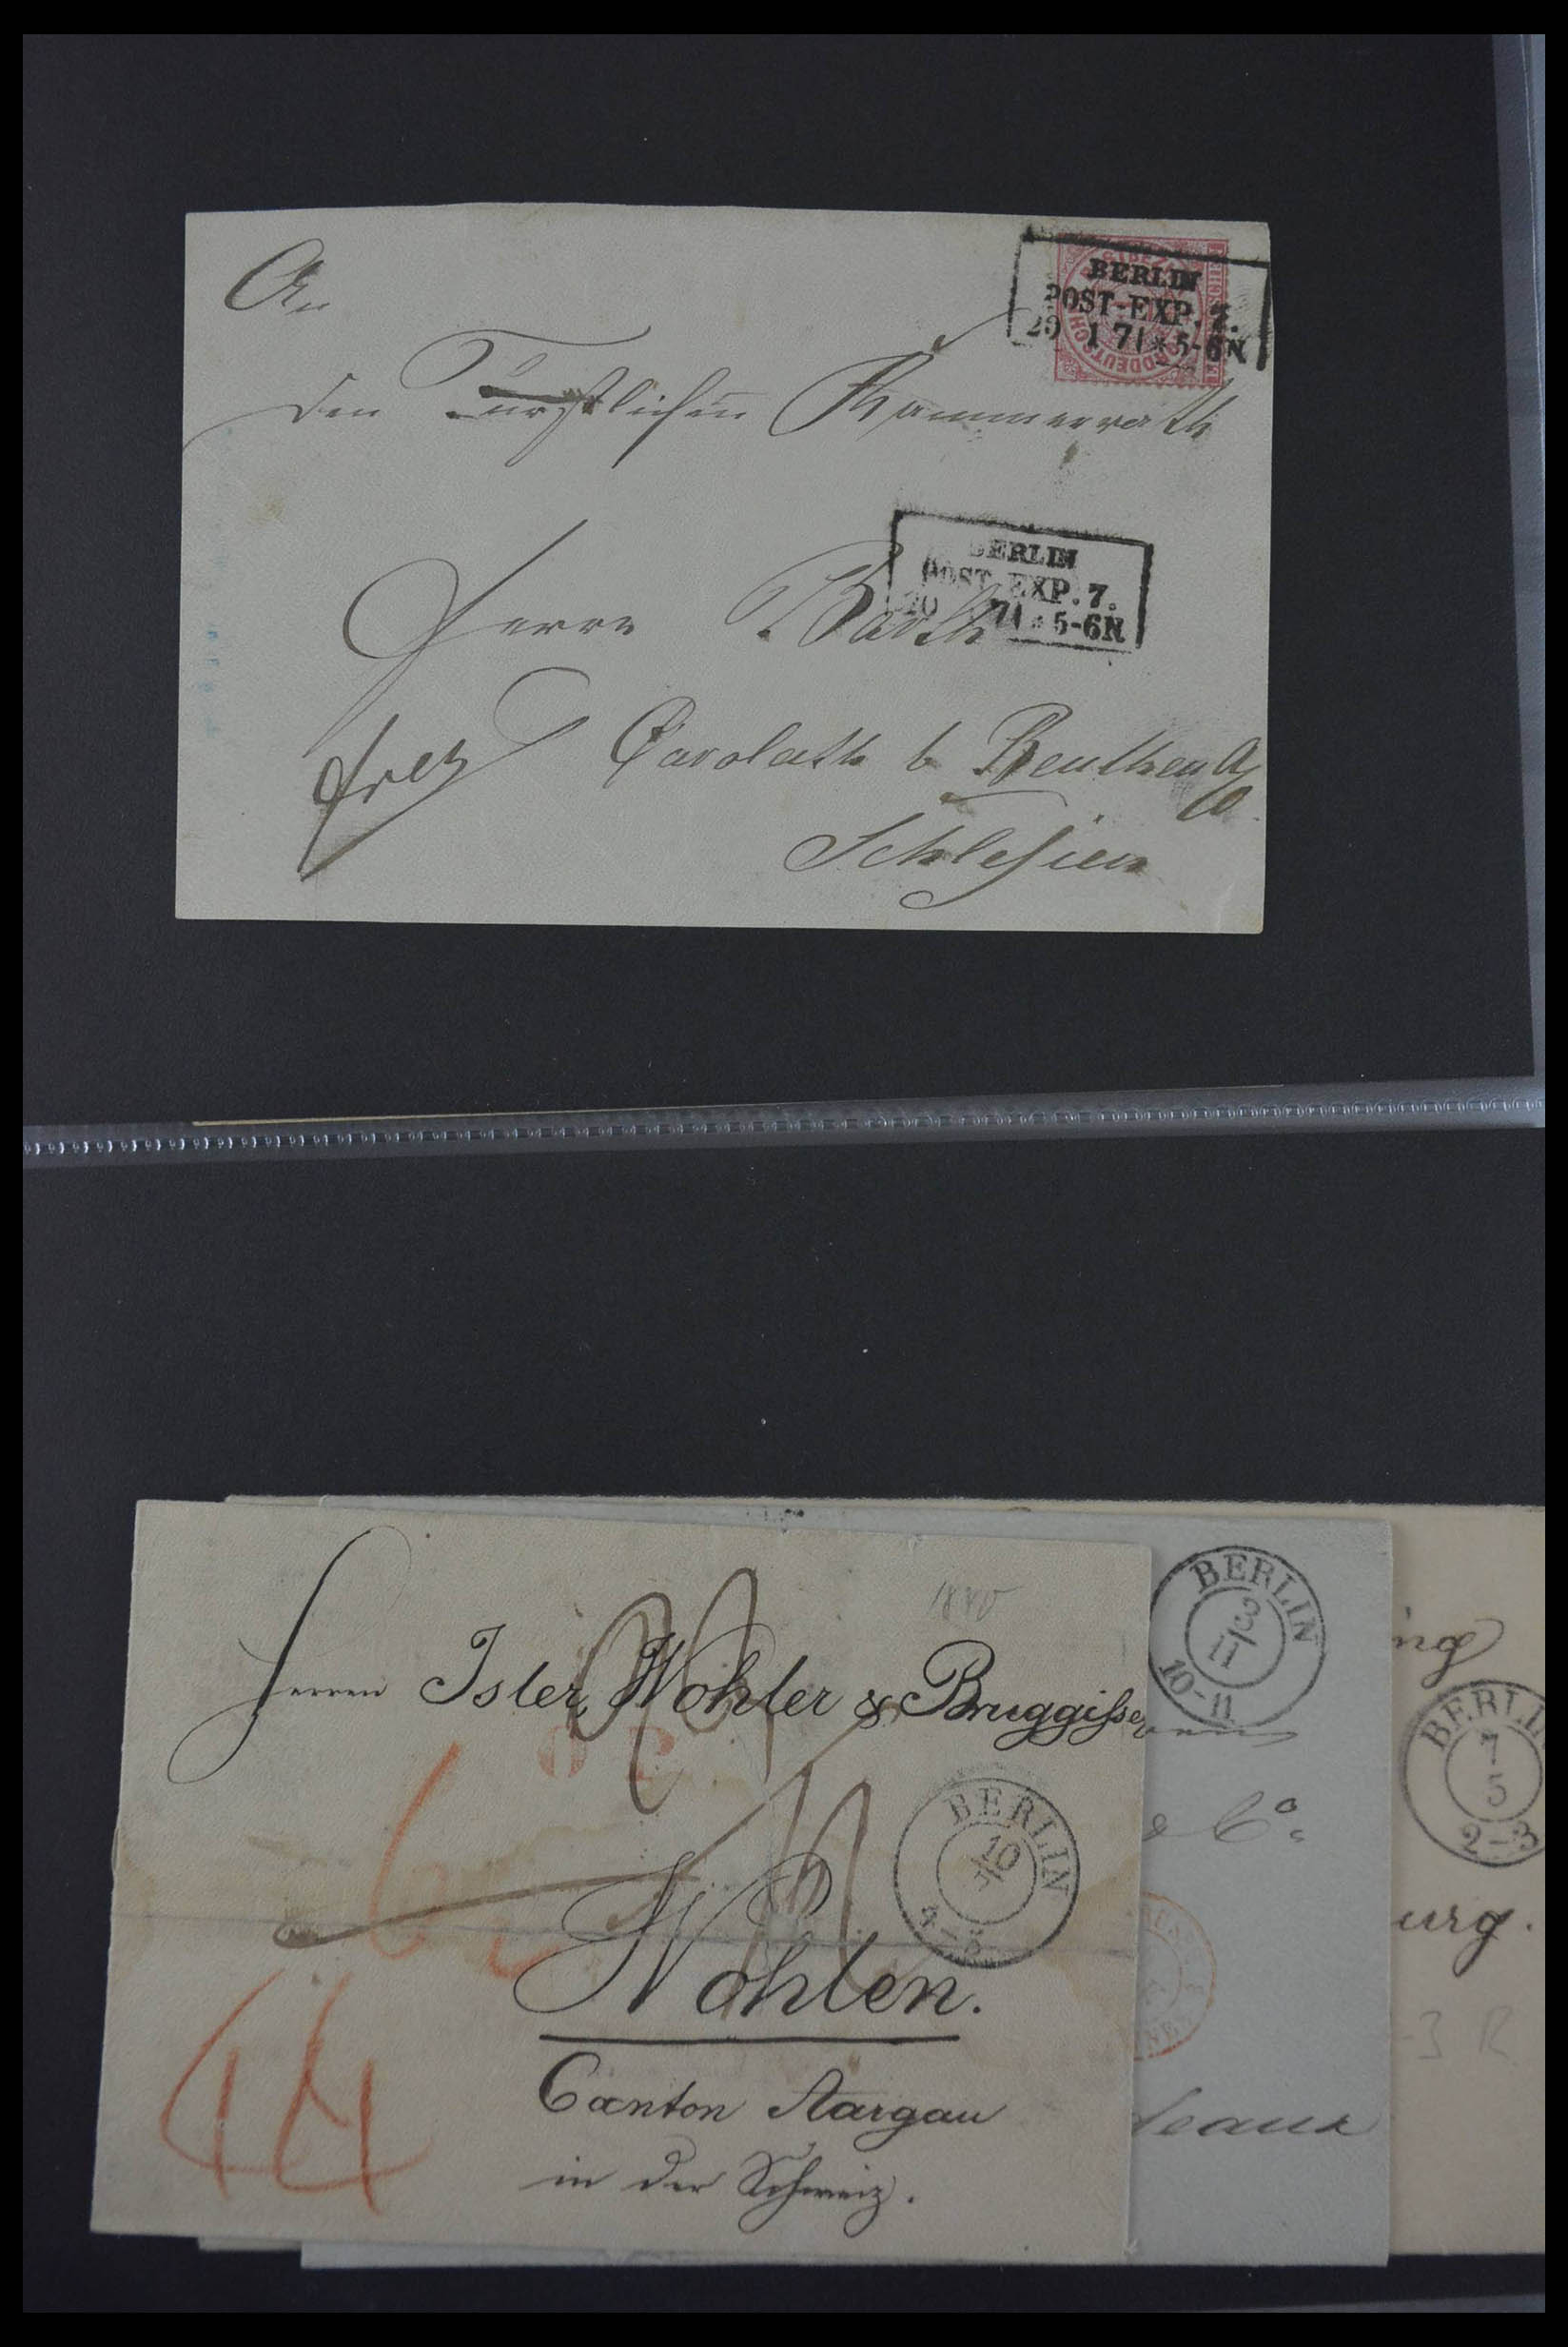 An
BERLIN
POST-EXP. 7.
20 1 71 * 5-6N
NORDDEUTSCHER
den Fürstlichen Kammerrath
BERLIN
POST-EXP. 7.
20 71 * 5-6N
Herrn Barth
frei Carolath b Beuthen a/O.
Schlesien
1880
Herren Isler, Wohler & Bruggisser
BERLIN
3/11
10-11
ing
BERLIN
7
5
2-3
BERLIN
10
4-5
& Co.
Wohlen.
urg.
3 R
44
Canton Aargau
deaux
in der Schweiz.